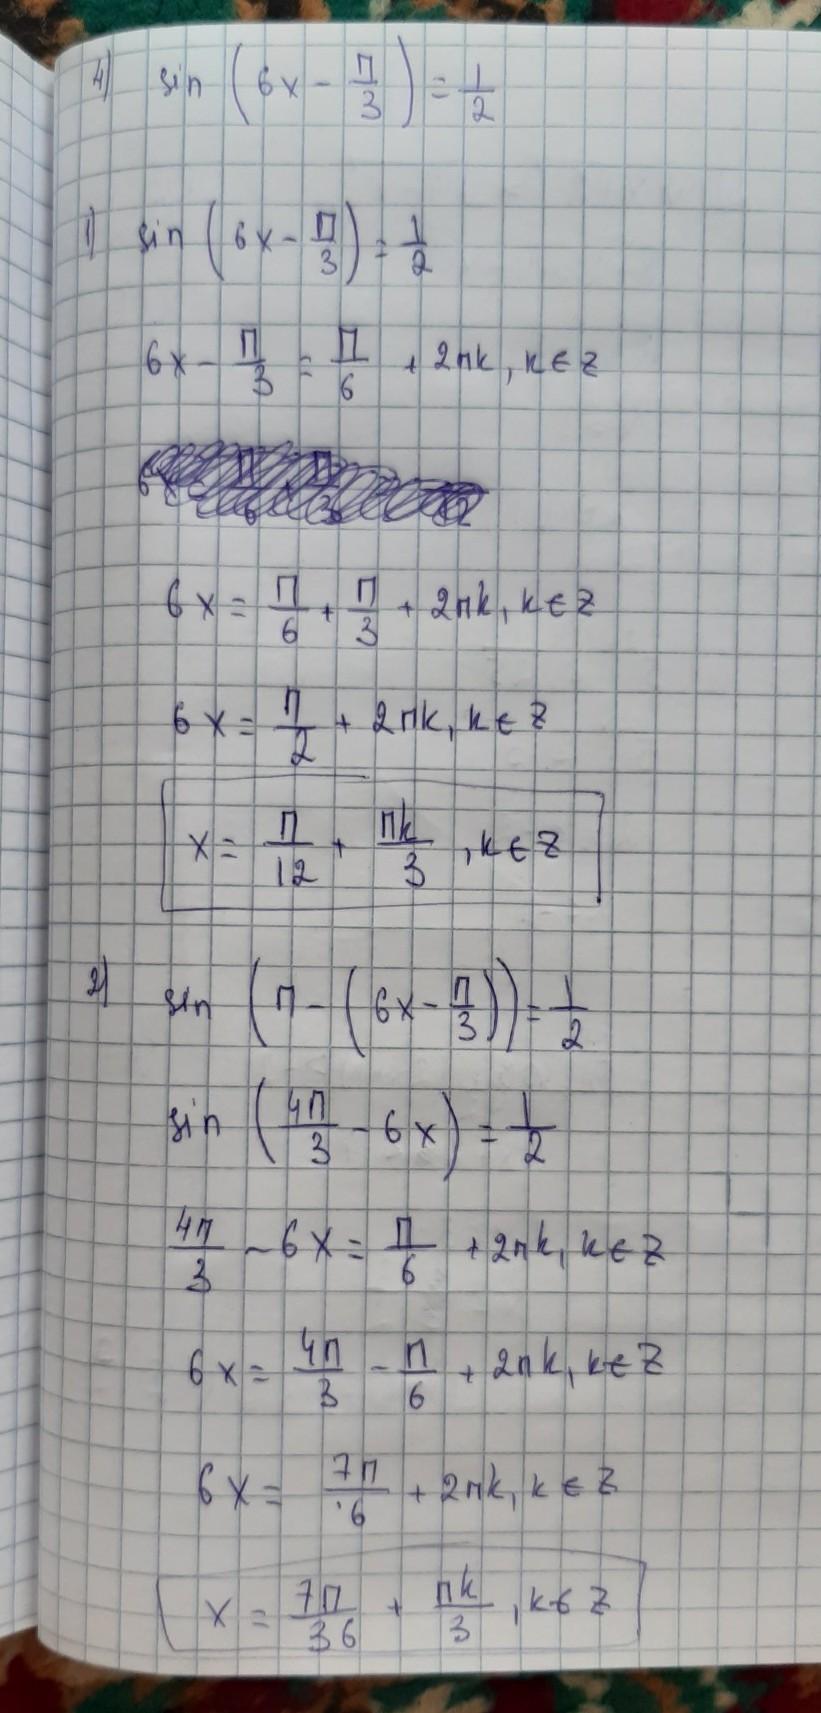 4) sin (6x - П/3) = 1/2
1) sin (6x - П/3) = 1/2
6x - П/3 = П/6 + 2пk, k ∈ Z
6x = П/6 + П/3 + 2пk, k ∈ Z
6x = П/2 + 2пk, k ∈ Z
x = П/12 + пk/3, k ∈ Z
2) sin (П - (6x - П/3)) = 1/2
sin (4П/3 - 6x) = 1/2
4п/3 - 6x = П/6 + 2пk, k ∈ Z
6x = 4П/3 - п/6 + 2пk, k ∈ Z
6x = 7П/6 + 2пk, k ∈ Z
x = 7П/36 + пk/3, k ∈ Z